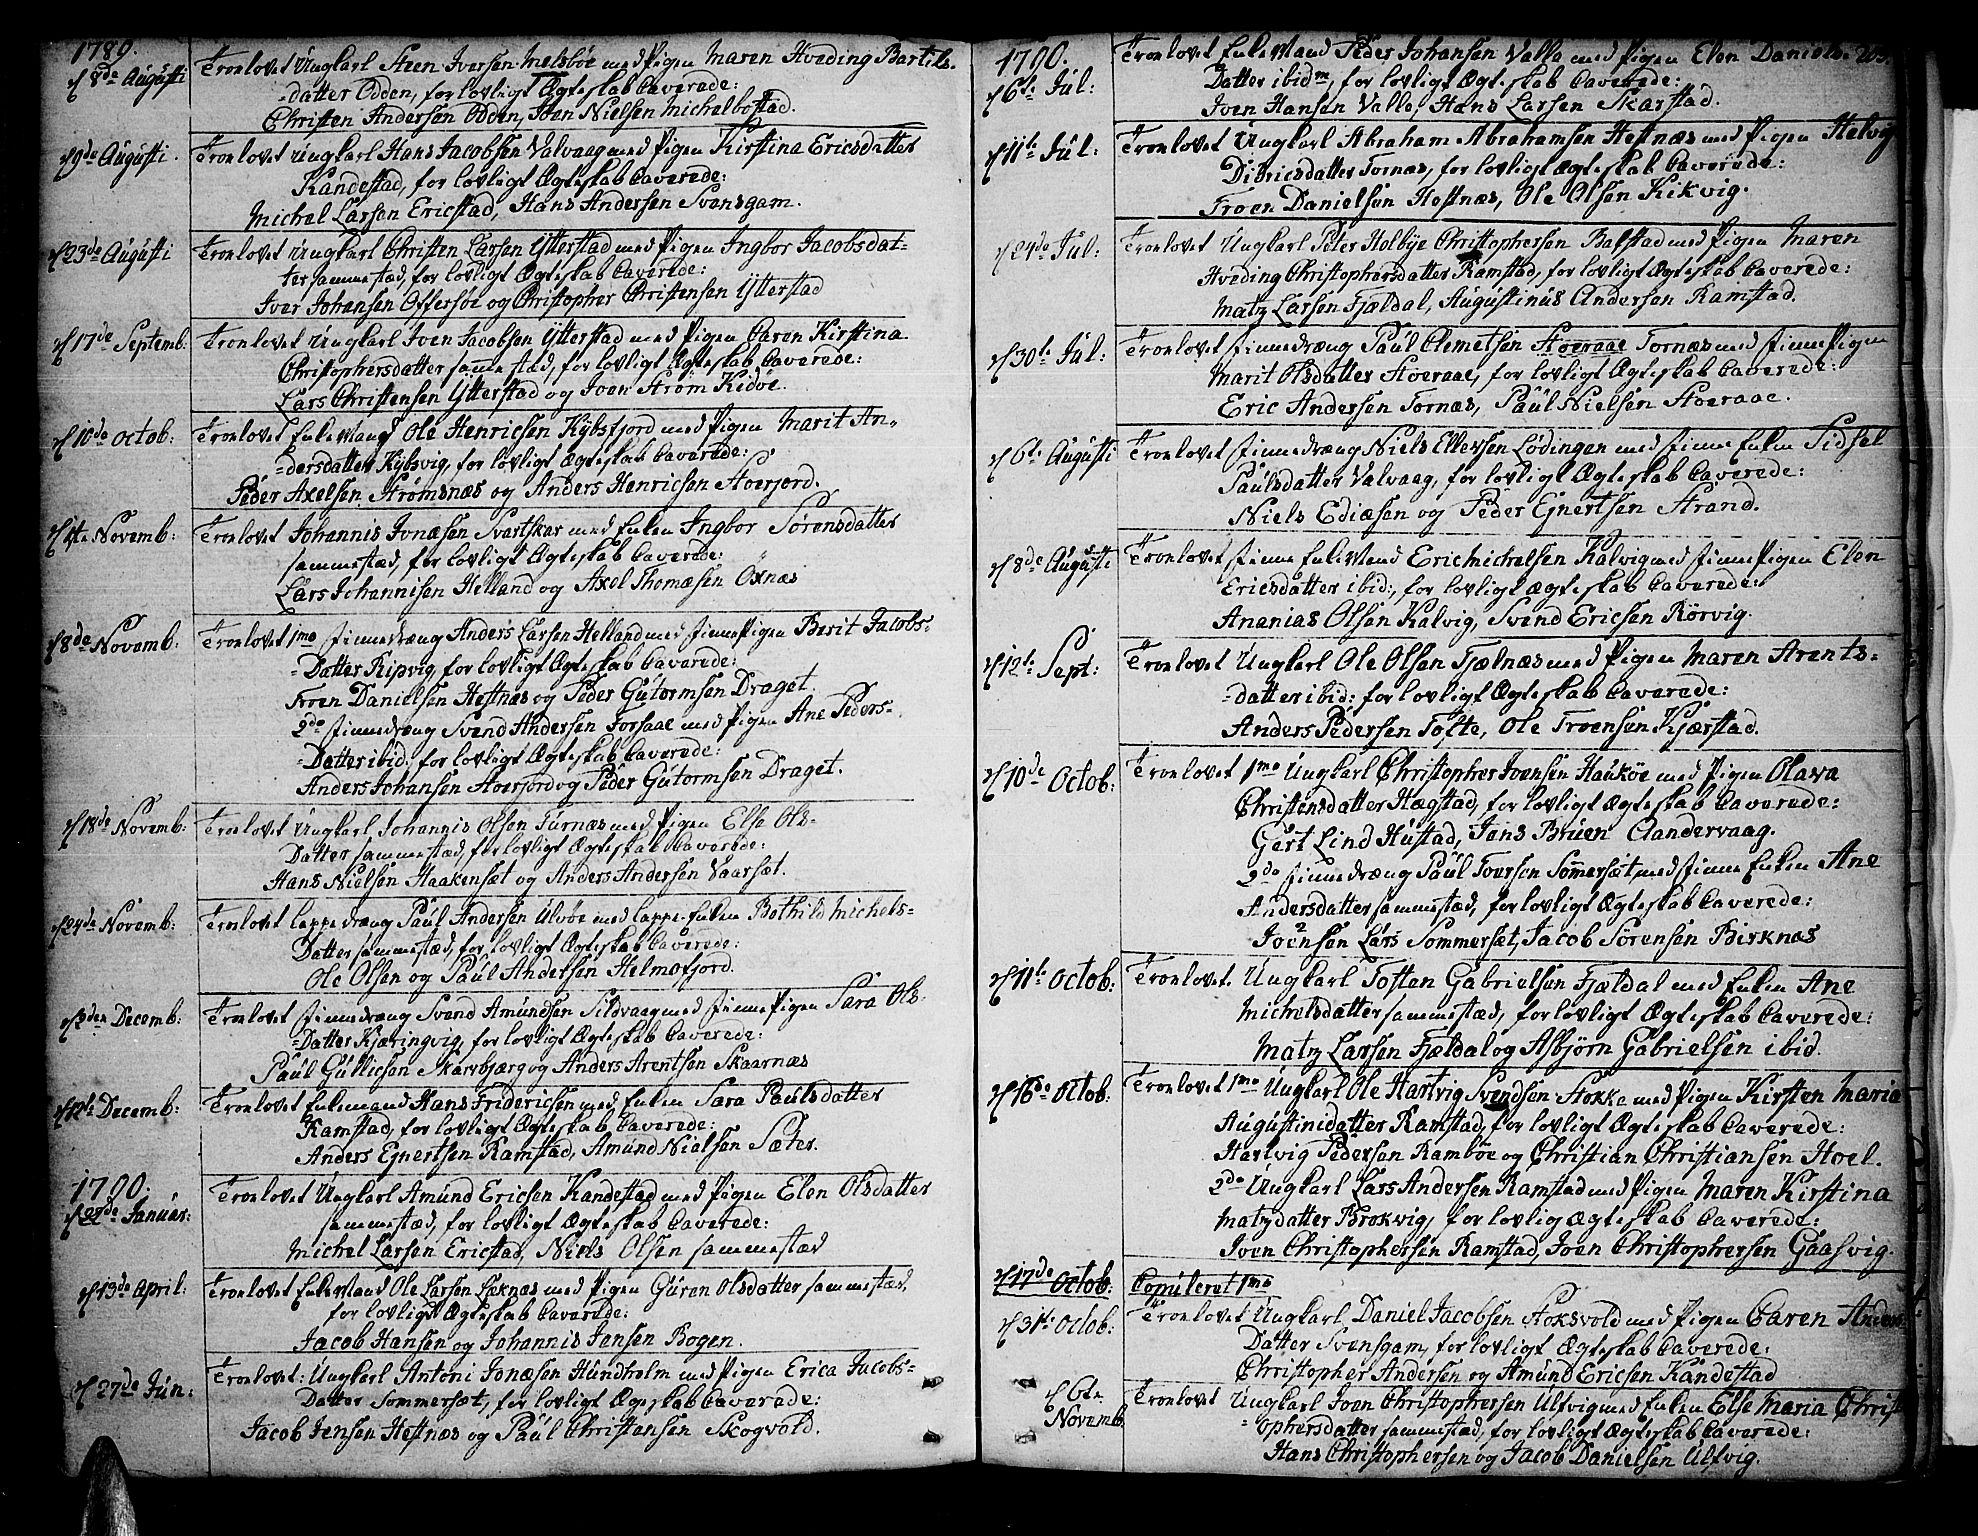 1789.
d 8de Augusti Troelovet Ungkarl Steen Iversen Melsbøe med Pigen Maren Hveding Bartils-
-datter Odden, for lovligt Ægteskab Caverede:
Christen Andersen Odden, Joen Nielsen Michelbostad.
d 9de Augusti. Troelovet Ungkarl Hans Jacobsen Valvaag med Pigen Kirstina Ericsdatter
Kandestad, for lovligt Ægteskab Caverede:
Michel Larsen Ericstad, Hans Andersen Svensgam.
d 23de Augusti Troelovet Ungkarl Christen Larsen Ytterstad med Pigen Ingbor Jacobsdat-
ter sammestæd, for lovligt Ægteskab Caverede:
Iver Johansen Offersøe og Christopher Christensen Ytterstad
d 17de Septemb: Troelovet Ungkarl Joen Jacobsen Ytterstad med Pigen Caren Kirstina
Christophersdatter samme stæd, for lovligt Ægteskab Caverede:
Lars Christensen Ytterstad og Joen Strøm Kidøe.
d 10de Octob: Troelovet Enkemand Ole Henricsen Kybsfjord med Pigen Marit An-
-dersdatter Kybsvig, for lovligt Ægteskab Caverede:
Peder Axelsen Strømsnæs og Anders Henricsen Stoerjord.
d 1te Novemb: Troelovet Johannis Jonæsen Svartskar med Enken Ingbor Sørensdatter
sammestæd, for lovligt Ægteskab Caverede:
Lars Johannisen Helland og Axel Thomæsen Oxnæs
d 8de Novemb: Troelovet 1mo Finnedræng Anders Larsen Helland med Finne Pigen Berit Jacobs-
-Datter Ripvig, for lovligt Ægteskab Caverede:
Froen Danielsen Hestnæs og Peder Gutormsen Draget
2do Finnedræng Svend Andersen Forsaae med Pigen Ane Peders-
-Datter ibid, for lovligt Ægteskab Caverede:
Anders Johansen Stoerjord og Peder Gutormsen Draget.
d 18de Novemb: Troelovet Ungkarl Johannis Olsen Turnæs med Pigen Else Ols-
Datter sammestæd, for lovligt Ægteskab Caverede:
Hans Nielsen Haakensæt og Anders Andersen Vaarsæt.
d 24de Novemb: Troelovet Lappedræng Paul Andersen Ulvøe med Lappe-Enken Bothild Michels-
Datter sammestæd, for lovligt Ægteskab Caverede:
Ole Olsen og Paul Andersen Helmofjord.
d 3den Decemb: Troelovet Finnedræng Svend Amundsen Sildvaag med Finne Pigen Sara Ols-
-Datter Kjæringvig, for lovligt Ægteskab Caverede:
Paul Gullicsen Skarvbjærg og Anders Arentsen Skaarnæs
d 12te Decemb: Troelovet Enkemand Hans Fridericsen med Enken Sara Paulsdatter
Ramstad, for lovligt Ægteskab Caverede:
Anders Ejnertsen Ramstad, Amund Nielsen Sæter.
1790.
d 22de Januar: Troelovet Ungkarl Amund Ericsen Kandestad med Pigen Elen Olsdatter
sammestæd, for lovligt Ægteskab Caverede:
Michel Larsen Ericstad, Niels Olsen sammestæd
d 13de April: Troelovet Enkemand Ole Larsen Læknæs med Pigen Guren Olsdatter sammestæd,
for lovligt Ægteskab Caverede:
Jacob Hansen og Johannis Jansen Bogen.
d 27de Jun: Troelovet: Ungkarl Antoni Jonæsen Hundholm med Pigen Erica Jacobs-
Datter Sommersæt, for lovligt Ægteskab Caverede:
Jacob Jensen Hestnæs og Paul Christensen Skogvold.
1790. Troelovet Enkemand Peder Johansen Valle med Pigen Elen Daniels- 203.
d 6te Jul: Datter ibidm, for lovligt Ægteskab Caverede:
Iven Hansen Valle, Hans Larsen Skarstad.
d 11te Jul: Troelovet Ungkarl Abraham Abrahamsen Hestnæs med Pigen Helvig
Didricsdatter Tornæs, for lovligt Ægteskab Caverede:
Froen Danielsen Hestnæs, Ole Olsen Kikvig.
d 24de Jul: Troelovet Ungkarl Peter Holbye Christophersen Balstad med Pigen Maren
Hveding Christophersdatter Ramstad, for lovligt Ægteskab Caverede:
Matz Larsen Fjældal, Augustinus Andersen Ramstad.
d 30te Jul: Troelovet Finnedræng Paul Clemetsen Stoeraae Tornæs med Finne Pigen
Marit Olsdatter Stoeraae, for lovligt Ægteskab Caverede:
Eric Andersen Tornæs, Paul Nielsen Stoeraae.
d 6te Augusti Troelovet Finnedræng Niels Ellersen Lødingen med Finne Enken Sidsel
Paulsdatter Valvaag, for lovligt Ægteskab Caverede:
Niels Ediæsen og Peder Ejnertsen Strand.
d 8de Augusti Troelovet Finne Enkemand Eric Michelsen Kalvig med Finne Pigen Elen
Ericsdatter ibid:, for lovligt Ægteskab Caverede:
Ananias Olsen Kalvig, Svend Ericsen Rörvig.
d 12te Sept: Troelovet Ungkarl Ole Olsen Fjælnæs med Pigen Maren Arents-
-datter ibid: for lovligt Ægteskab Caverede:
Anders Pedersen Tofte, Ole Troensen Kjærstad.
d 10de Octob: Troelovet 1mo Ungkarl Christopher Ivensen Haukøe med Pigen Olava
Christensdatter Hægstad, for lovligt Ægteskab Caverede:
Gert Lind Hustad, Jans Bruen Clandervaag.
2do Finnedræng Paul Toersen Sommersæt, med Finne Enken Ane
Andersdatter sammestæd, for lovligt Ægteskab Caverede:
Joensen Lars Sommersæt, Jacob Sörensen Birknæs
d 11te Octob: Troelovet. Ungkarl Tosten Gabrielsen Fjældal med Enken Ane
Michelsdatter sammestæd, for lovligt Ægteskab Caverede:
Matz Larsen Fjældal og Asbjørn Gabrielsen ibid.
d 16de Octob: Troelovet 1mo Ungkarl Ole Hartvig Svendsen Stokke med Pigen Kirsten Maria
Augustinidatter Ramstad, for lovligt Ægteskab Caverede:
Hartvig Pedersen Rambøe og Christian Christiansen Hoel.
2do Ungkarl Lars Andersen Ramstad med Pigen Maren Kirstina
Matzdatter Brokvig, for lovligt Ægteskab Caverede:
Joen Christophersen Ramstad, Joen Christophersen Gaasvig.
d 17de Octob: Copuleret 1mo
d 31te Octob: Troelovet Ungkarl Daniel Jacobsen Stoksvold med Pigen Caren Anders
Datter Svensgam, for lovligt Ægteskab Caverede:
Christopher Andersen og Amund Ericsen Kandestad
d 6te Novemb Troelovet Ungkarl Joen Christophersen Ulfvig med Enken Else Maria Christ
-ophersdatter sammestæd, for lovligt Ægteskab Caverede:
Hans Christophersen og Jacob Danielsen Ulfvig.